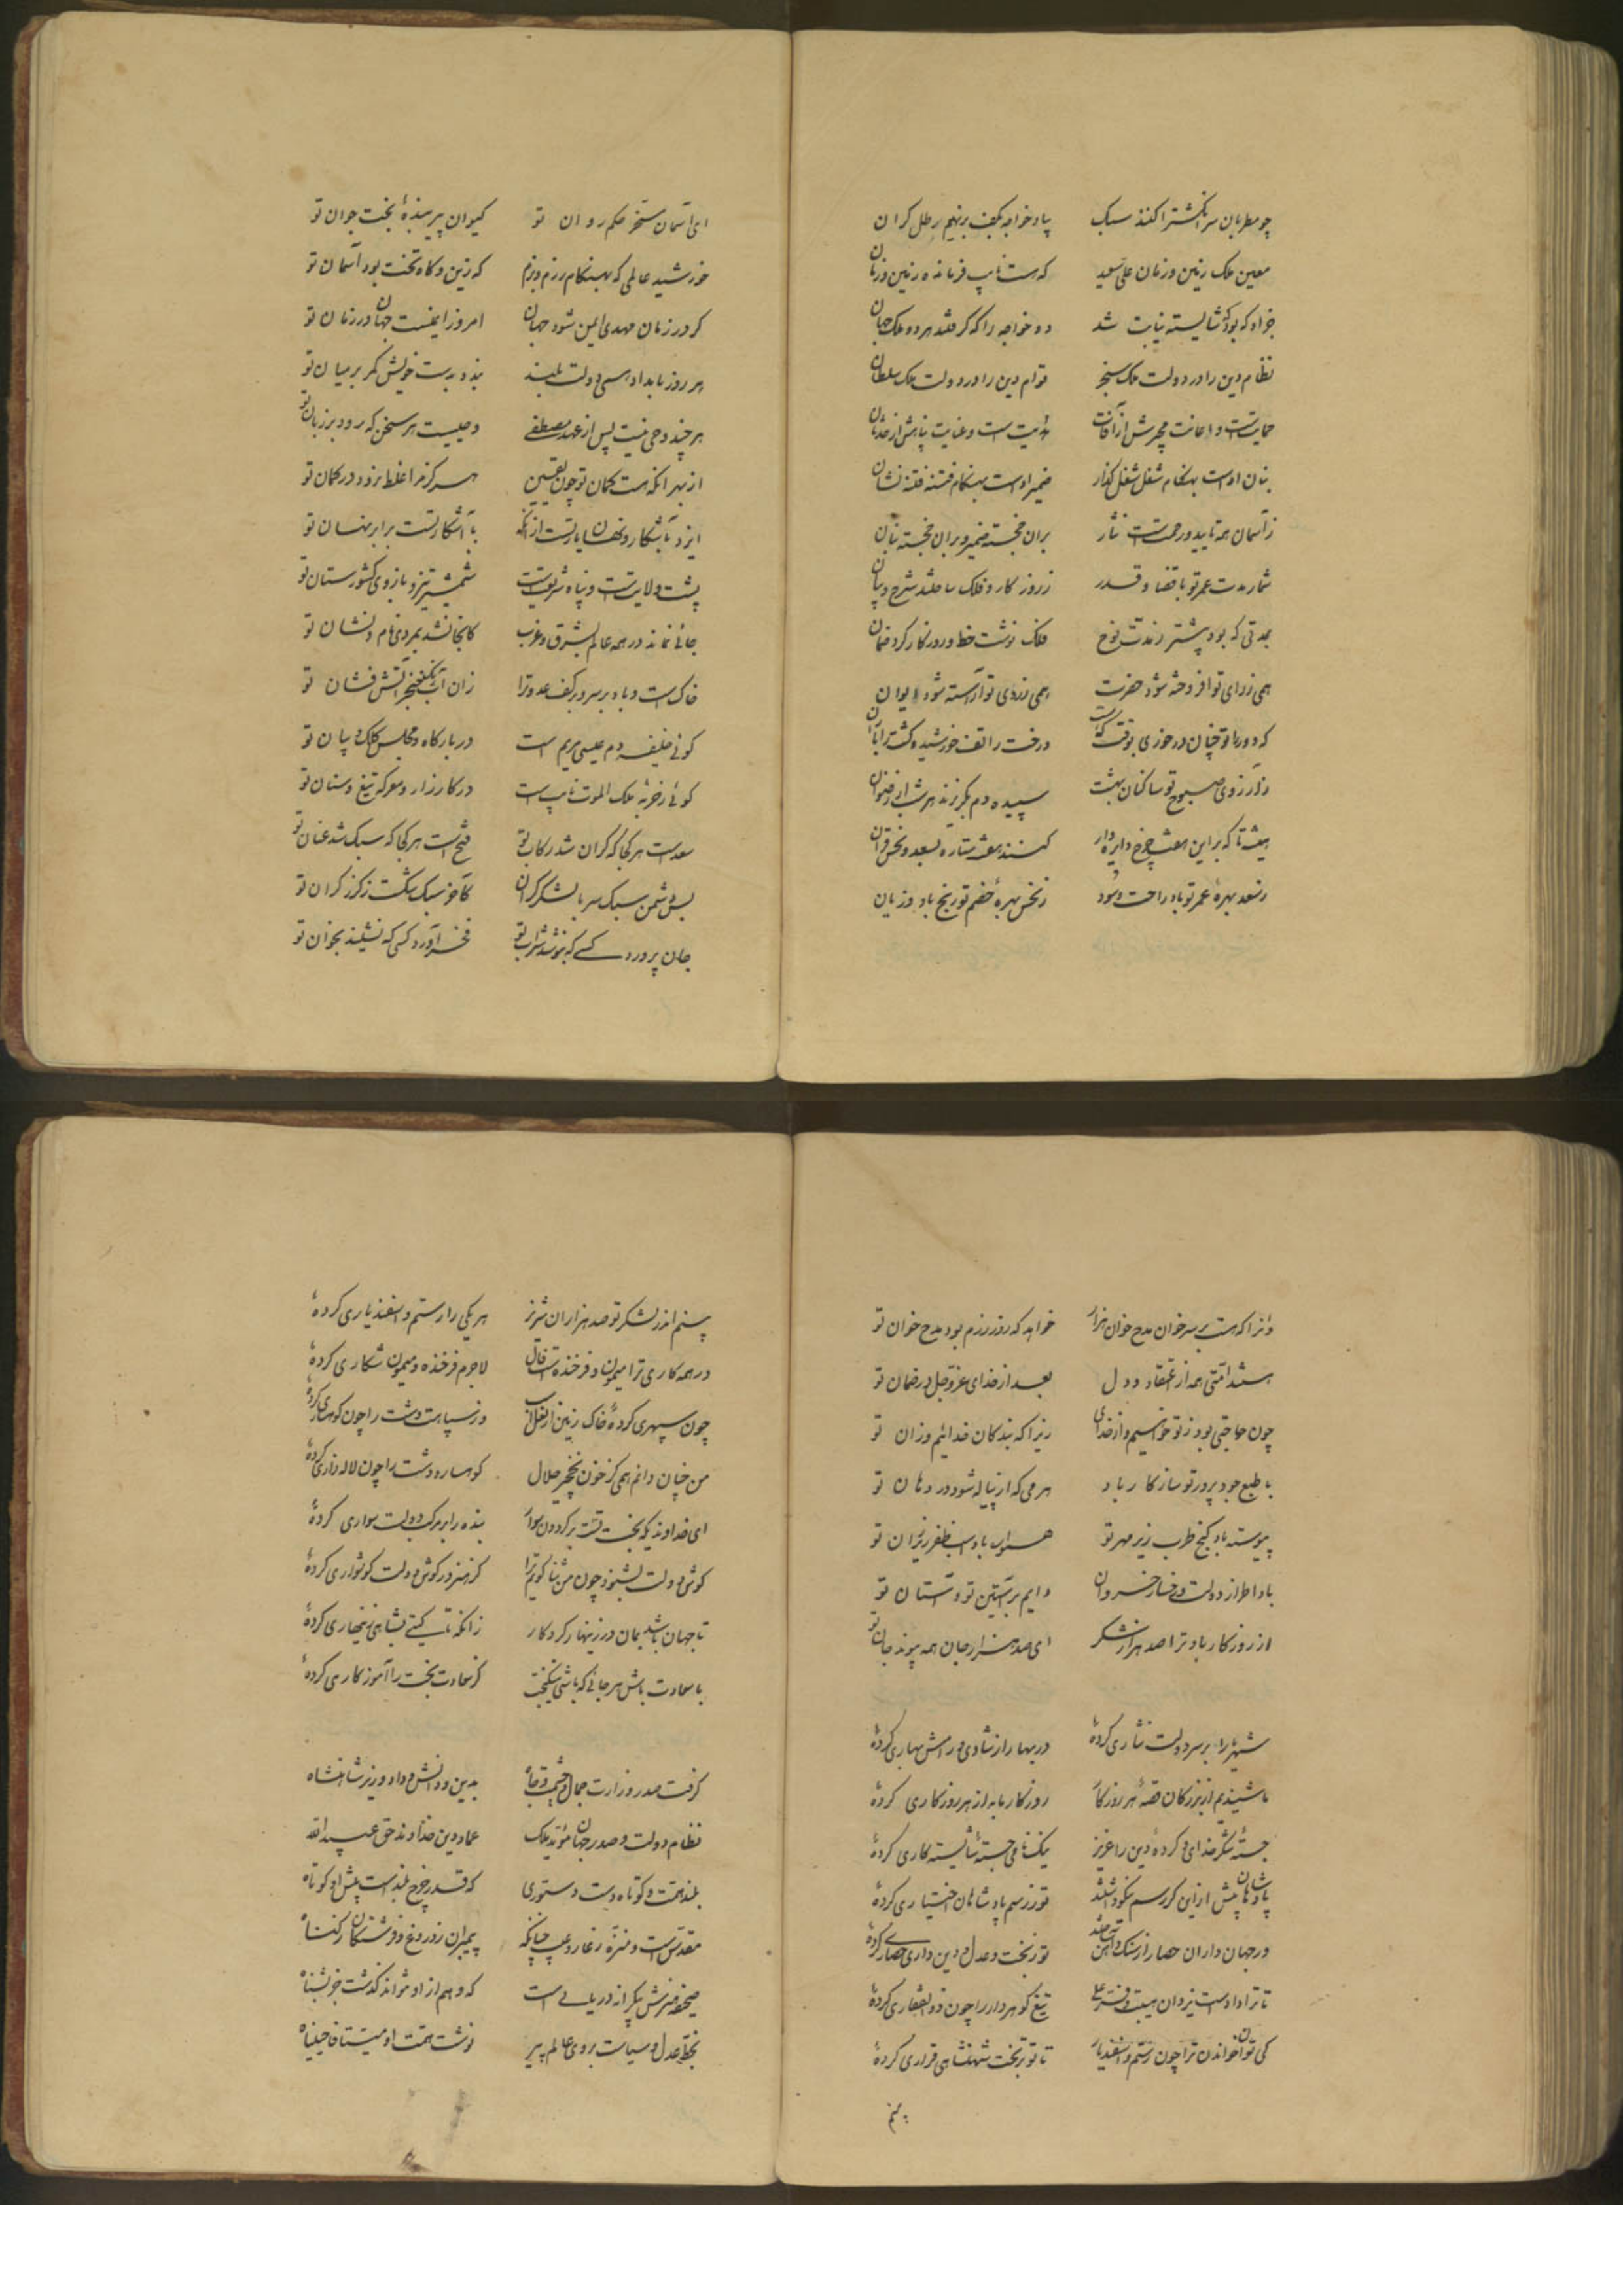 چو مطربان سر انگشترا کنند سبک بیاد خواجه بکف برنهم رطل کران
معین ملک زمین و زمان علی سعید که هست نایب فرمانده زمین و زمان
جز او که بود که شایسته نیابت شد دو خواجه را که گرفتند هر دو ملک جهان
نظام دین را در دولت ملک سنجر قوام دین را در دولت ملک سلطان
حمایتست و اعانت مجرش از آفات هدایت است و عنایت پناهش از خذلان
بنان اوست بهنکام شغل شغل کذار ضمیر اوست بهنکام فتنه فتنه نشان
ز آسمان همه تایید و رحمتست نثار بران خجسته ضمیر و بران خجسته بنان
شمار مدت عمر تو با قضا و قدر ز روزکار و فلک ساختند شرح و بیان
بمدتی که بود پیشتر ز مدت نوح فلک نوشت خط و روزکار کرد ضمان
همی ز رای تو افروخته شود حضرت همی ز روی تو آراسته شود ایوان
که دور با تو چنان در خوری بوقت درخت را تف خورشید و کشت را باران
ز آرزوی صبوح تو ساکنان بهشت سپیده دم بکریزند هر شب از رضوان
همیشه تا که بر این هفت چرخ دایره وار کنند هفت ستاره بسعد و نحس قران
ز سعد بهره عمر تو باد راحت و سود ز نحس بهرهٔ خصم تو رنج باد و زیان
ای آسمان مسخر حکم روان تو کیوان پیر بندهٔ بخت جوان تو
خورشید عالمی که بهنکام رزم و بزم که زین و کاه تخت بود آسمان تو
کر در زمان مهدی ایمن شود جهان امروز ایمنست جهان در زمان تو
هر روز بامداد همی دولت بلند بندد بدست خویش کمر بر میان تو
هر چند وحی نیست پس از عهد مصطفی وحیست هر سخن که رود بر زبان تو
از بهر آنکه هست کمان تو چون یقین هرکز مرا غلط نرود در کمان تو
ایزد بآشکار و نهان یار تست از آنکه با آشکار تست برابر نهان تو
پشت ولایتست و پناه شریعتست شمشیر تیز و بازوی کشورستان تو
جائی نماند در همه عالم بشرق و غرب کانجا نشد بمردی نام و نشان تو
خاک است و باد بر سر و بر کف عدو ترا زان آب رنگ خنجر آتش فشان تو
کوئی خلیفه دم عیسی مریم است در بارکاه و مجلس کلک و بیان تو
کوئی ز خربهٔ ملک الموت نایب است در کارزار و معرکه تیغ و سنان تو
سعد است هر کجا که کران شد رکاب تو فتح است هر کجا که سبک شد عنان تو
بس دشمن سبک سر با لشکر کران کآخر سبک شکست ز کرز کران تو
جان پرورد کسی که بنوشد شراب تو فخر آورد کسی که نشیند بخوان تو
وانرا که هست بر سر خوان مدح خوان هزار خواهد که روز رزم بود مدح خوان تو
هستند امتی همه از اعتقاد و دل بعد از خدای عزوجل در ضمان تو
چون حاجتی بود ز تو خواهیم و از خدای زیرا که بندکان خدائیم و زان تو
با طبع جود پرور تو سازکار باد هر می که از پیاله شود در دهان تو
پیوسته باد کنج طرب زیر مهر تو همواره باد اسب ظفر زیر ران تو
بادا طراز دولت و رخسار خسروان دایم بر آستین تو و آستان تو
از روزکار باد ترا صد هزار شکر ای صد هزار جان همه پیوند جان تو
شهریارا بر سر دولت نثاری کردهٔ در بهار از شادی و رامش بهاری کردهٔ
ما شنیدیم از بزرکان قصهٔ هر روزکار روزکار ما به از هر روزکاری کردهٔ
جستهٔ شکر خدای و کردهٔ دین را عزیز نیکنامی جستهٔ شایسته کاری کردهٔ
پادشاهان پیش ازین کر رسم نیکو داشتند تو ز رسم پادشاهان اختیاری کردهٔ
ور جهان داران حصار از سنک و آهن ساختند تو ز بخت و عدل و دین داری حصاری کردهٔ
تا ترا دادست یزدان هیبت و فر علی تیغ کوهردار را چون ذوالفقاری کردهٔ
کی توان خواندن ترا چون رستم و اسفندیار تا تو بر تخت شهنشاهی قراری کردهٔ
بینم
بینم اندر لشکر تو صد هزاران شیر نر هر یکی را رستم و اسفندیاری کردهٔ
در همه کاری ترا میمون و فرخندست فال لاجرم فرخنده و میمون شکاری کردهٔ
چون سپهری کردهٔ خاک زمین از نعل اسب وز سپاهت دشت را چون کوهساری کردهٔ
من چنان دانم همی کز خون نخجیر حلال کوهسار و دشت را چون لاله زاری کردهٔ
ای خداوندیکه بخت تست بر کردون سوار بنده را بر مرکب دولت سواری کردهٔ
کوش دولت بشنود چون من ثنا کویم ترا کز هنر در کوش دولت کوشواری کردهٔ
تا جهان باشد بمان در زینهار کردکار زانکه تا کیتی بشاهی زینهاری کردهٔ
با سعادت باش هر جائی که باشی نیکبخت کز سعادت بخت را آموزکاری کردهٔ
کرفت صدر وزارت جمال و حشمت و جاه بدین و دانش و داد وزیر شاهنشاه
نظام دولت و صدر جهان مؤید ملک عماد دین خداوند حق عبید الله
بلند همت و کوتاه دست دستوری که قدر چرخ بلند است پیش او کوتاه
مقدس است و منزه ز عار و عیب چنانکه پیمبران ز دروغ و فرشتکان ز کناه
صحیفه هنرش بیکرانه دریائی است که وهم از او نتواند کذشت جز بشناه
بخط عدل و سیاست بروی عالم پیر نوشت همت او میستان جنیناه